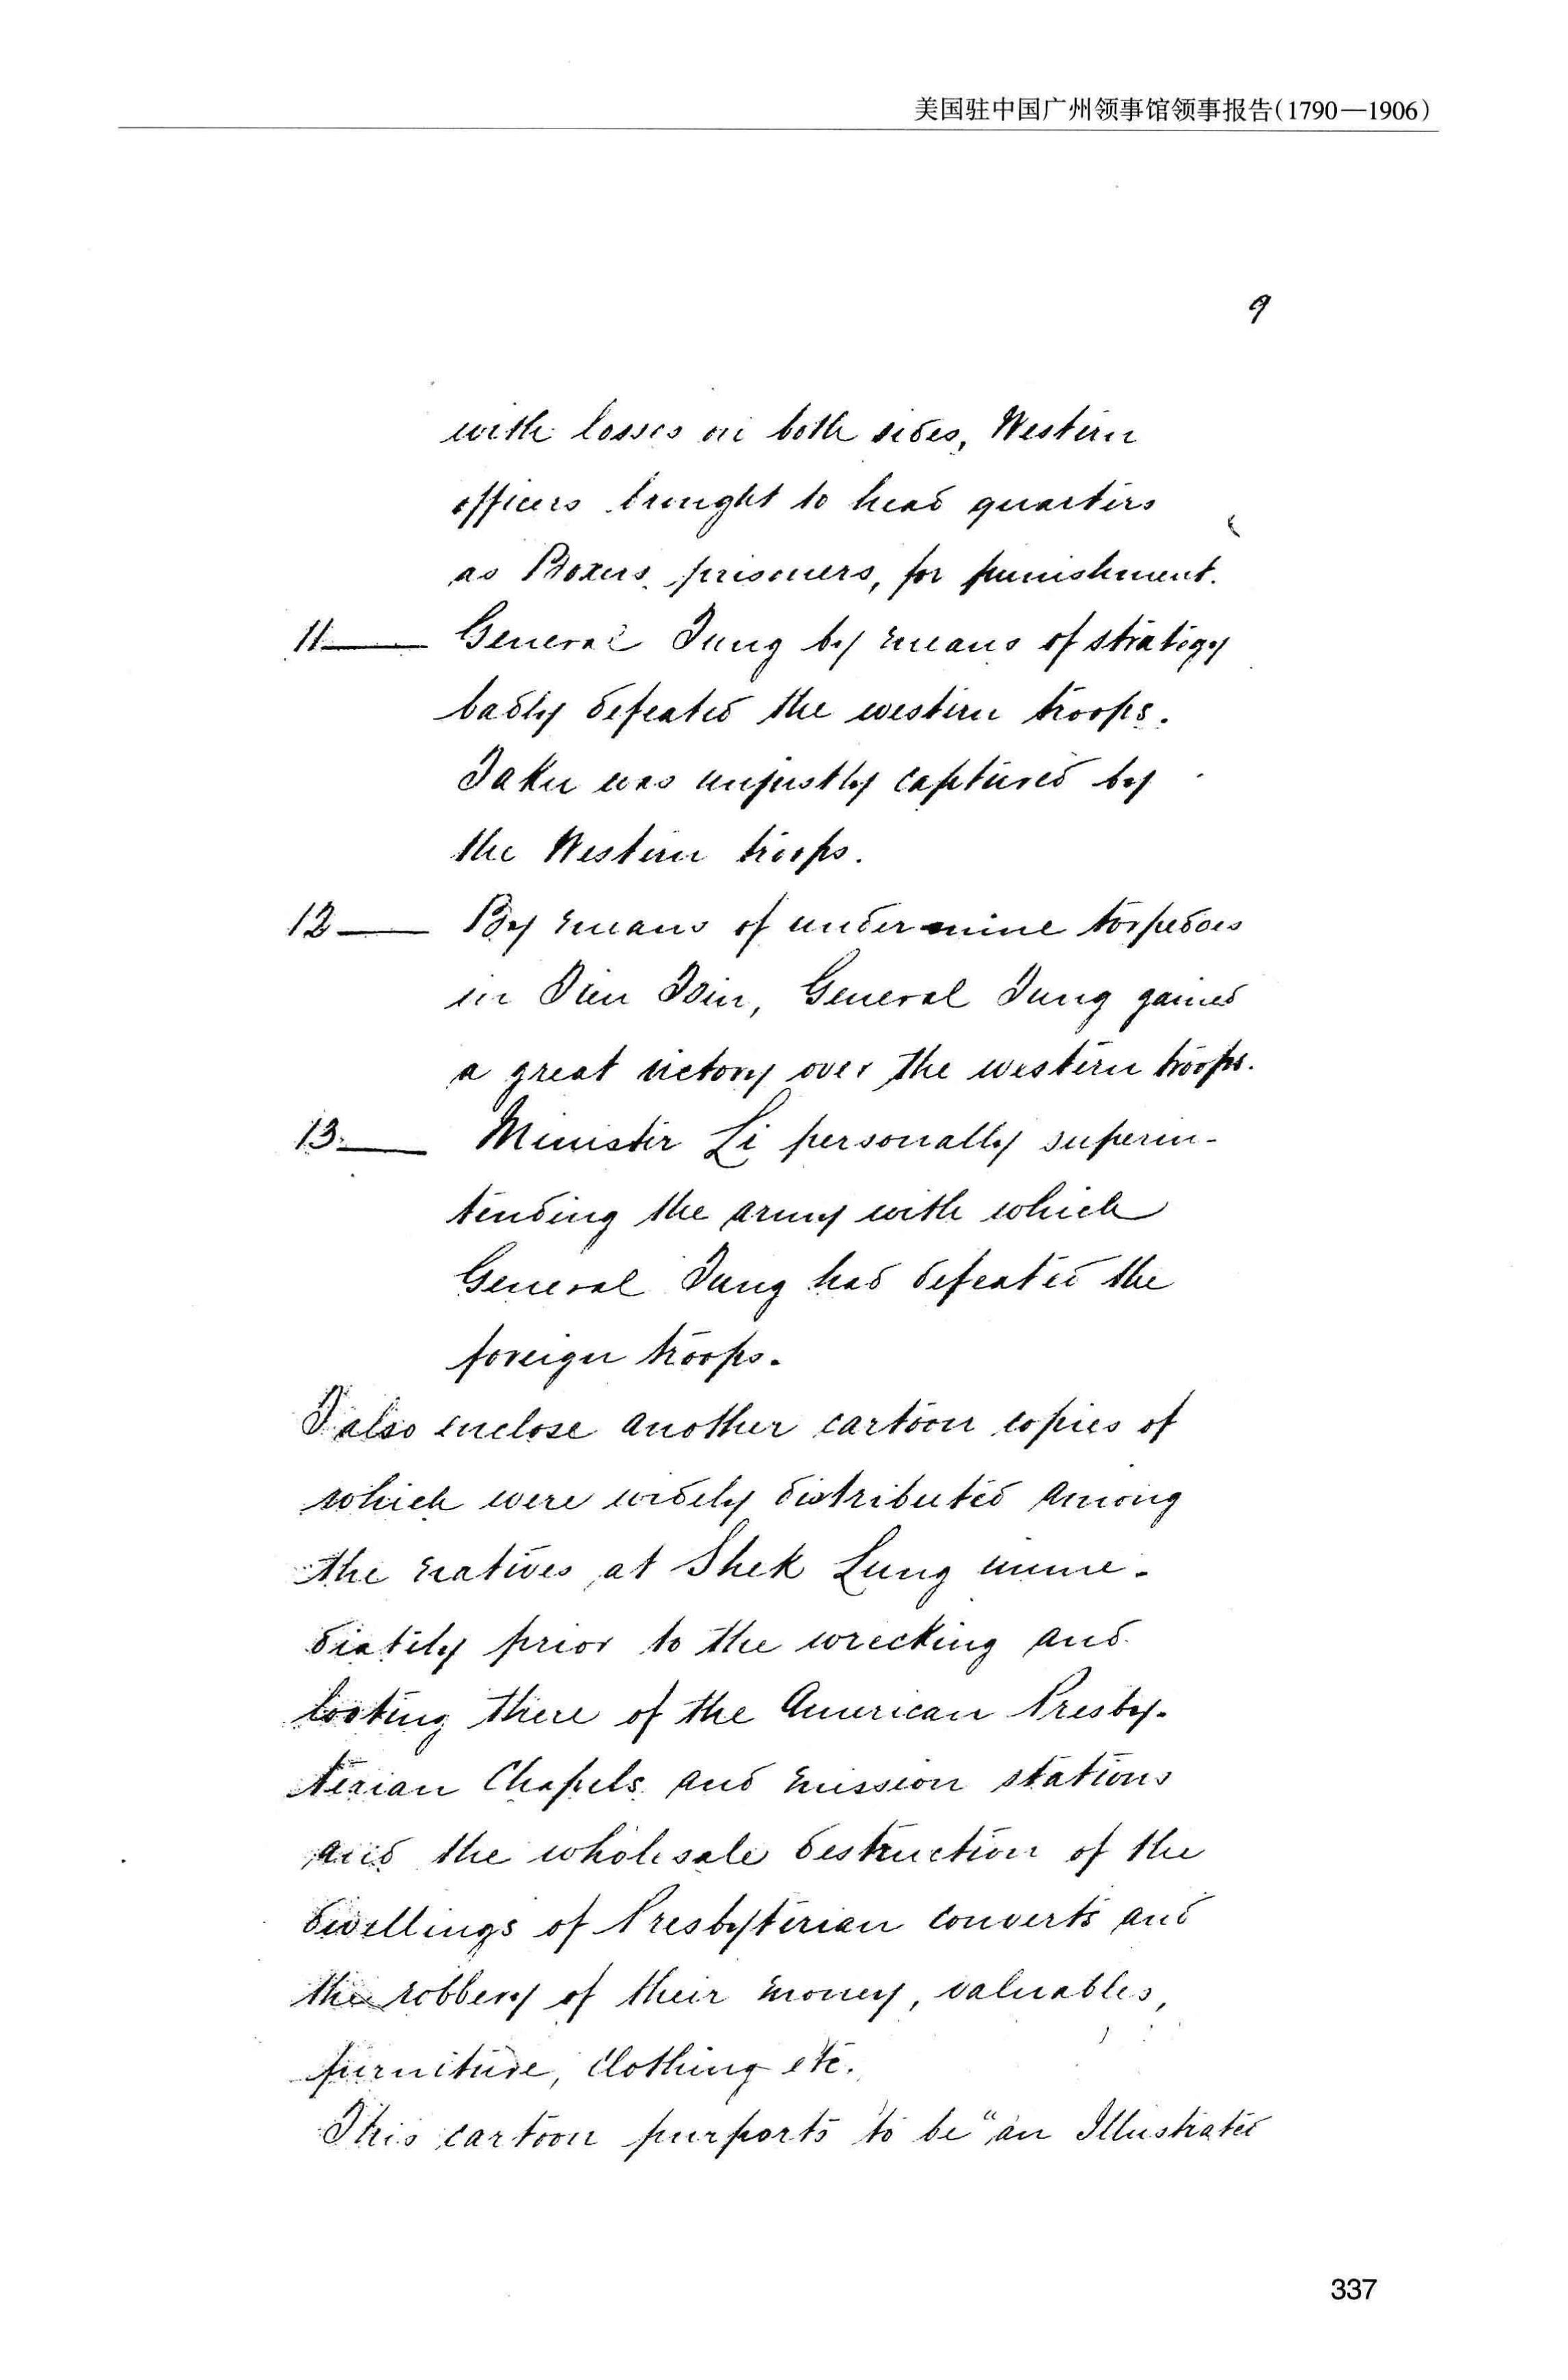 美国驻中国广州领事馆领事报告(1790—1906)
9
with losses on both sides, Western
officers brought to head quarters
as Boxers prisoners, for punishment.
11— General Tung by means of strategy
badly defeated the western troops.
Taku was unjustly captured by
the Western troops.
12— By means of undermine torpedoes
in Tien Tsin, General Tung gained
a great victory over the western troops.
13.— Minister Li personally superin-
tending the army with which
General Tung had defeated the
foreign troops.
I also enclose another cartoon copies of
which were widely distributed among
the natives at Shek Lung imme-
diately prior to the wrecking and
looting there of the American Presby-
terian Chapels and mission stations
and the wholesale destruction of the
dwellings of Presbyterian converts and
the robbery of their money, valuables,
furniture, clothing etc.
This cartoon purports to be "an Illustrated
337